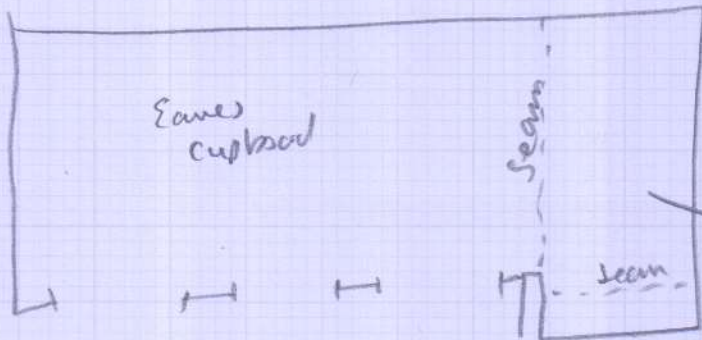 Eaves
cupboard
seam
seam